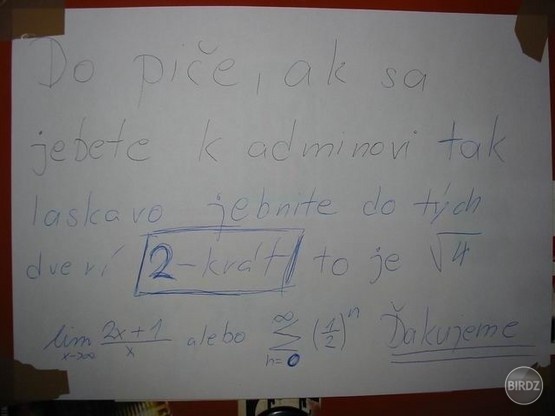 Do piče, ak sa
jebete k adminovi tak
laskavo jebnite do tých
dverí 2-krát! to je √4
lim x→∞ (2x+1)/x alebo ∑ n=0 ∞ (1/2)^n Ďakujeme
BIRDZ